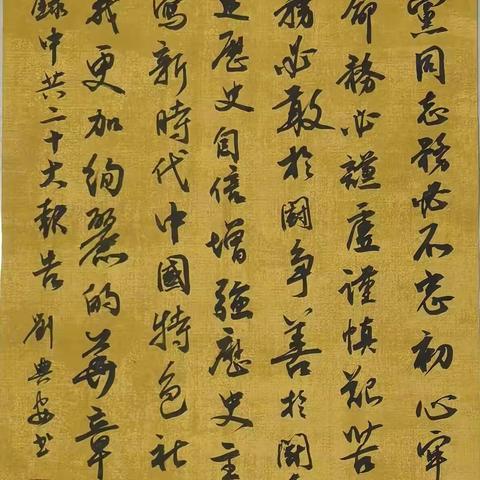 黨同志務必不忘初心牢
命務必謙虛謹慎艱苦
務必敢於鬪争善於鬪
定歷史自信增強歷史主
寫新時代中國特色社
我更加絢麗的華章
錄中共二十大報告 劉典安书